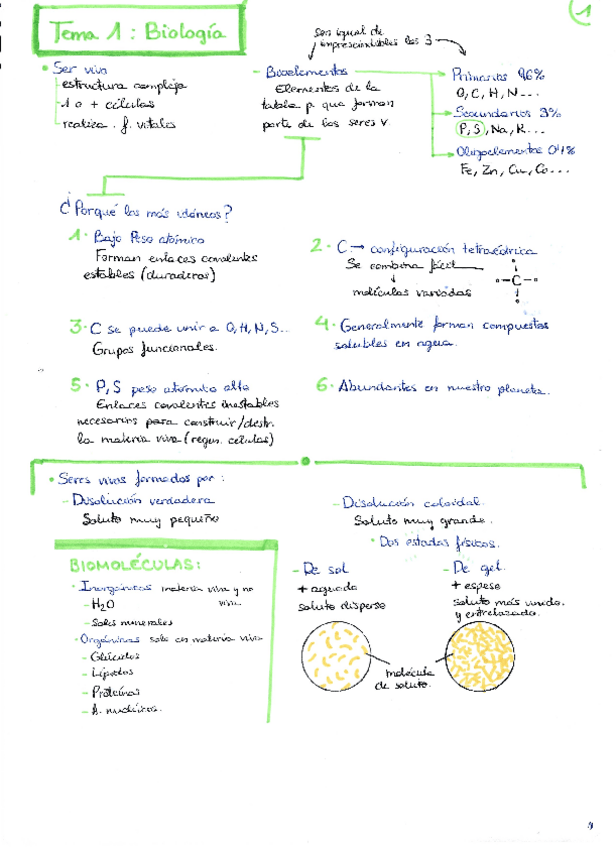 Tema 1: Biología
1
Son igual de
imprescindibles los 3
• Ser vivo
- estructura compleja
- 1 o + células
- realiza f. vitales
- Bioelementos
Elementos de la
tabla p. que forman
parte de los seres v.
Primarios 96%
O, C, H, N...
Secundarios 3%
P, S, Na, K...
Oligoelementos 0'1%
Fe, Zn, Cu, Co...
¿Porqué los más idóneos?
1. Bajo Peso atómico
Forman enlaces covalentes
estables (duraderos)
2. C → configuración tetraédrica
Se combina fácil
moléculas variadas
- C -
3. C se puede unir a O, H, N, S...
Grupos funcionales.
4. Generalmente forman compuestos
solubles en agua.
5. P, S peso atómico alto
Enlaces covalentes inestables
necesarios para construir/destr.
la materia viva (regen. células)
6. Abundantes en nuestro planeta.
• Seres vivos formados por:
- Disolución verdadera
Soluto muy pequeño
- Disolución coloidal.
Soluto muy grande.
• Dos estados físicos.
BIOMOLÉCULAS:
• Inorgánicas materia viva y no
viva
- H₂O
- Sales minerales
• Orgánicas solo en materia viva
- Glúcidos
- Lípidos
- Proteínas
- A. nucleicos.
- De sol
+ aguado
soluto disperso
- De gel.
+ espeso
soluto más unido.
y entrelazado.
molécula
de soluto.